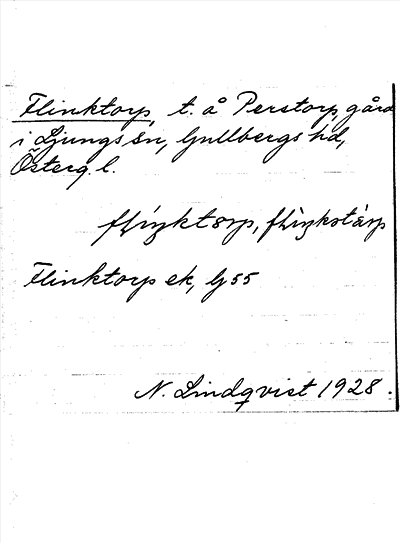 Flinktorp, t. å Perstorp, gård
i Ljungs sn, Gullbergs hd,
Österg. l.
Flinktorp ek, G 55
N. Lindqvist 1928.